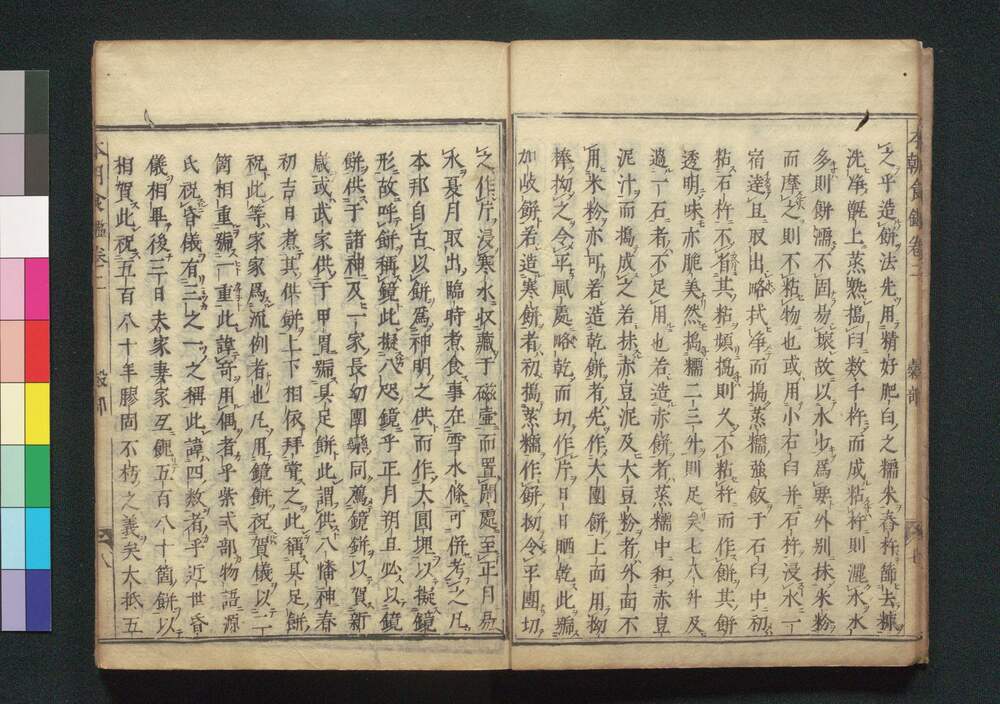 之乎造餅法先用精好肥白之糯米舂杵篩去糠
洗淨甑上蒸熟搗臼數千杵而成粘杵則灑水水
多則餅濡不固易壞故以水少爲要外別抹米粉
而摩之則不粘物也或用小石臼并石杵浸水一
宿逹旦取出略拭淨而搗蒸糯強飯于石臼中初
粘石杵不省其粘頻搗則久不粘杵而作餅其餅
透明味亦脆美然搗糯二三升則足矣七八升及
過一石者不足用也若造赤餅者蒸糯中和赤豆
泥汁而搗成之若抹赤豆泥及大豆粉者外面不
用米粉亦可若造乾餅者先作大團餅上面用拗
棒拗之令平風處略乾而切作片日日晒乾此號
加岐餅若造寒餅者初搗蒸糯作餅拗令平團切
之作片浸寒水收藏于磁壷而置閴處至正月易
水夏月取出臨時煮食事在雪水條可併考之凡
本邦自古以餅爲神明之供而作大圓塊以擬鏡
形故呼餅稱鏡此擬八咫鏡乎正月朔旦必以鏡
餅供于諸神及一家長幼團欒同薦鏡餅以賀新
歳或武家供于甲冑號具足餅此謂供八幡神春
初吉日煮其供餅上下相依拜甞之此稱具足餅
祝此等家家爲流例者也凡用鏡餅祝賀儀以二
箇相重號一重此諱竒用偶者乎紫式部物語源
氏祝昏儀有三之一之稱此諱四數者乎近世昏
儀相畢後三日夫家妻家互餽五百八十箇餅以
相賀此祝五百八十年膠固不朽之義矣大抵五
本朝食鑑卷二
穀部
七
本朝食鑑卷二
穀部
八